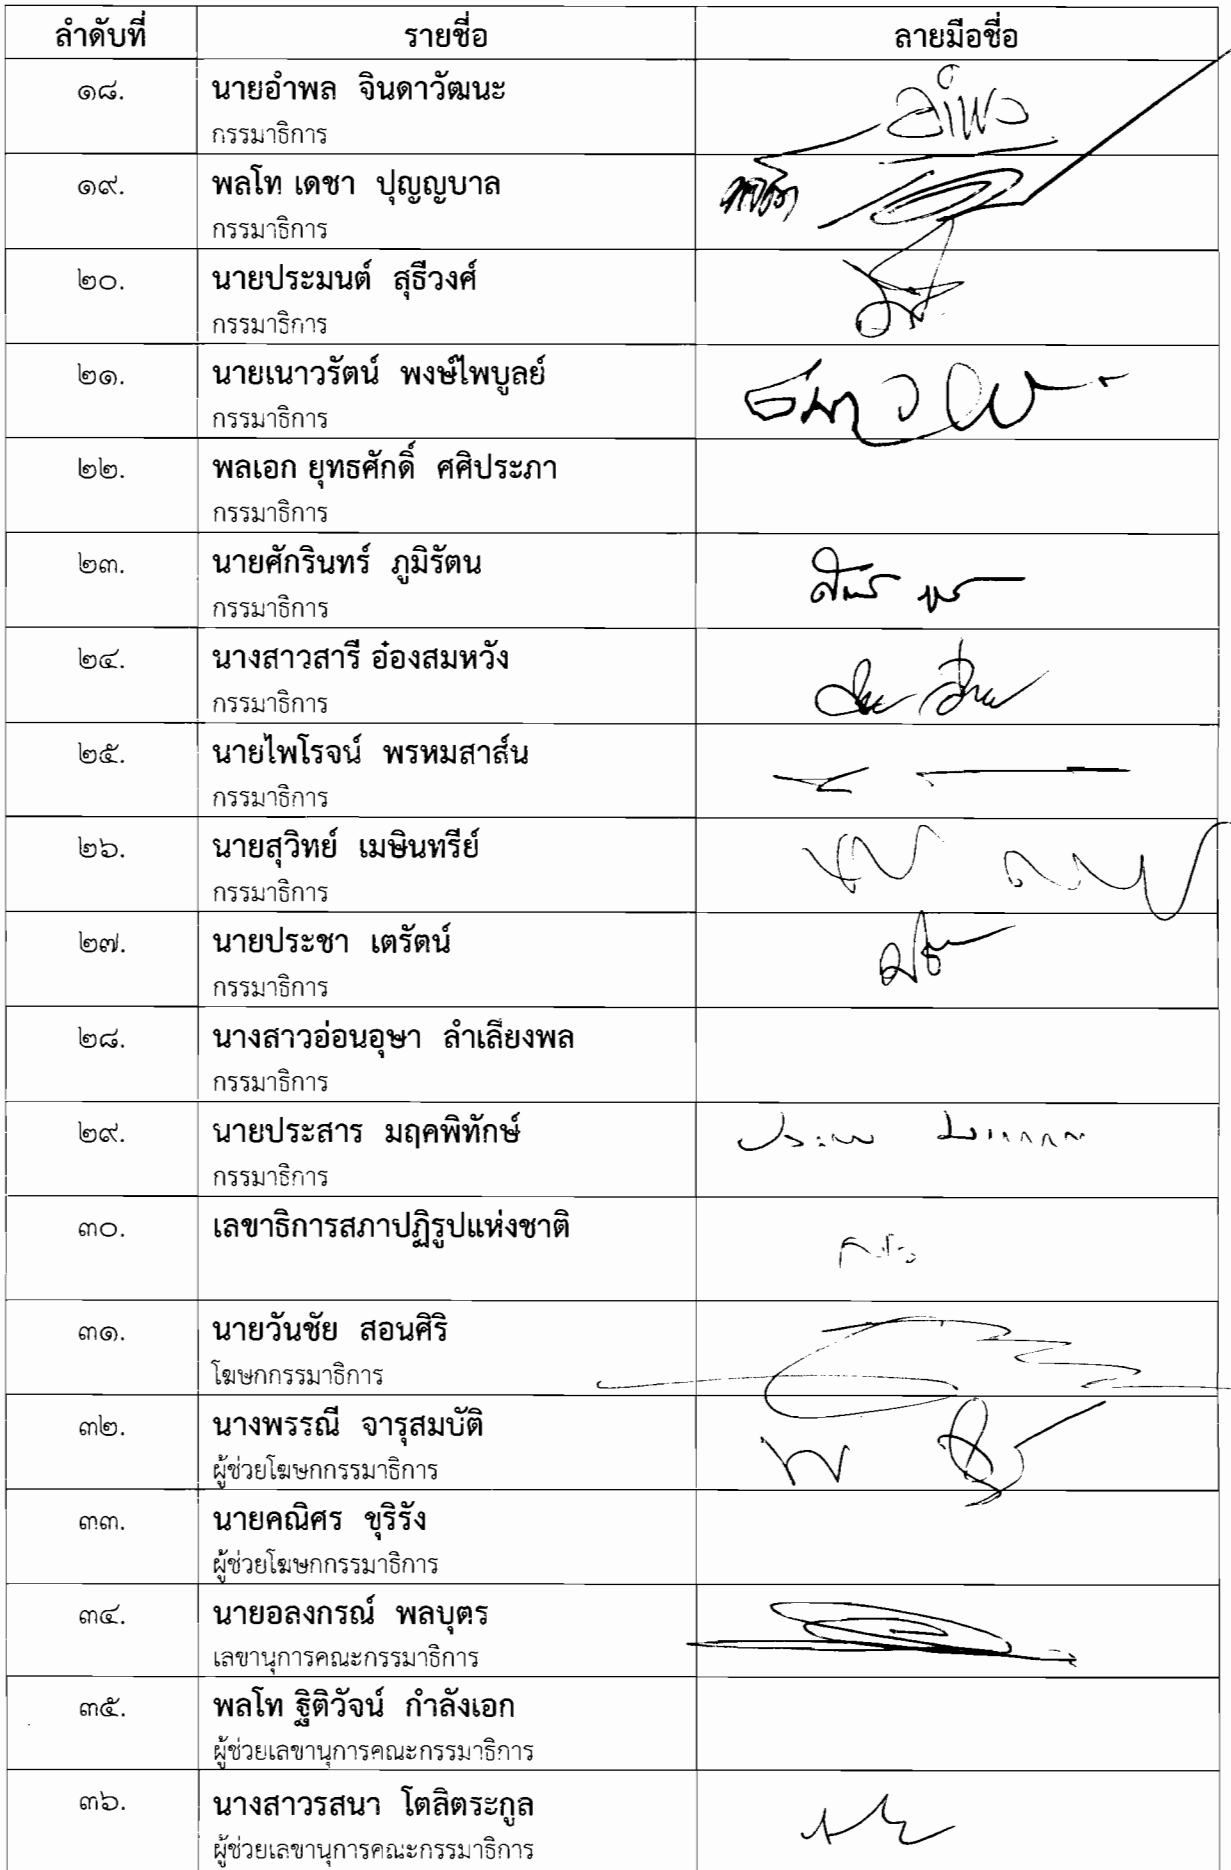 ลำดับที่ รายชื่อ ลายมือชื่อ
๑๘. นายอำพล จินดาวัฒนะ
กรรมาธิการ
๑๙. พลโท เดชา ปุญญบาล
กรรมาธิการ
๒๐. นายประมนต์ สุธีวงศ์
กรรมาธิการ
๒๑. นายเนาวรัตน์ พงษ์ไพบูลย์
กรรมาธิการ
๒๒. พลเอก ยุทธศักดิ์ ศศิประภา
กรรมาธิการ
๒๓. นายศักรินทร์ ภูมิรัตน
กรรมาธิการ
๒๔. นางสาวสารี อ๋องสมหวัง
กรรมาธิการ
๒๕. นายไพโรจน์ พรหมสาส์น
กรรมาธิการ
๒๖. นายสุวิทย์ เมษินทรีย์
กรรมาธิการ
๒๗. นายประชา เตรัตน์
กรรมาธิการ
๒๘. นางสาวอ่อนอุษา ลำเลียงพล
กรรมาธิการ
๒๙. นายประสาร มฤคพิทักษ์
กรรมาธิการ
๓๐. เลขาธิการสภาปฏิรูปแห่งชาติ
๓๑. นายวันชัย สอนศิริ
โฆษกกรรมาธิการ
๓๒. นางพรรณี จารุสมบัติ
ผู้ช่วยโฆษกกรรมาธิการ
๓๓. นายคณิศร ขุริรัง
ผู้ช่วยโฆษกกรรมาธิการ
๓๔. นายอลงกรณ์ พลบุตร
เลขานุการคณะกรรมาธิการ
๓๕. พลโท ฐิติวัจน์ กำลังเอก
ผู้ช่วยเลขานุการคณะกรรมาธิการ
๓๖. นางสาวรสนา โตสิตระกูล
ผู้ช่วยเลขานุการคณะกรรมาธิการ